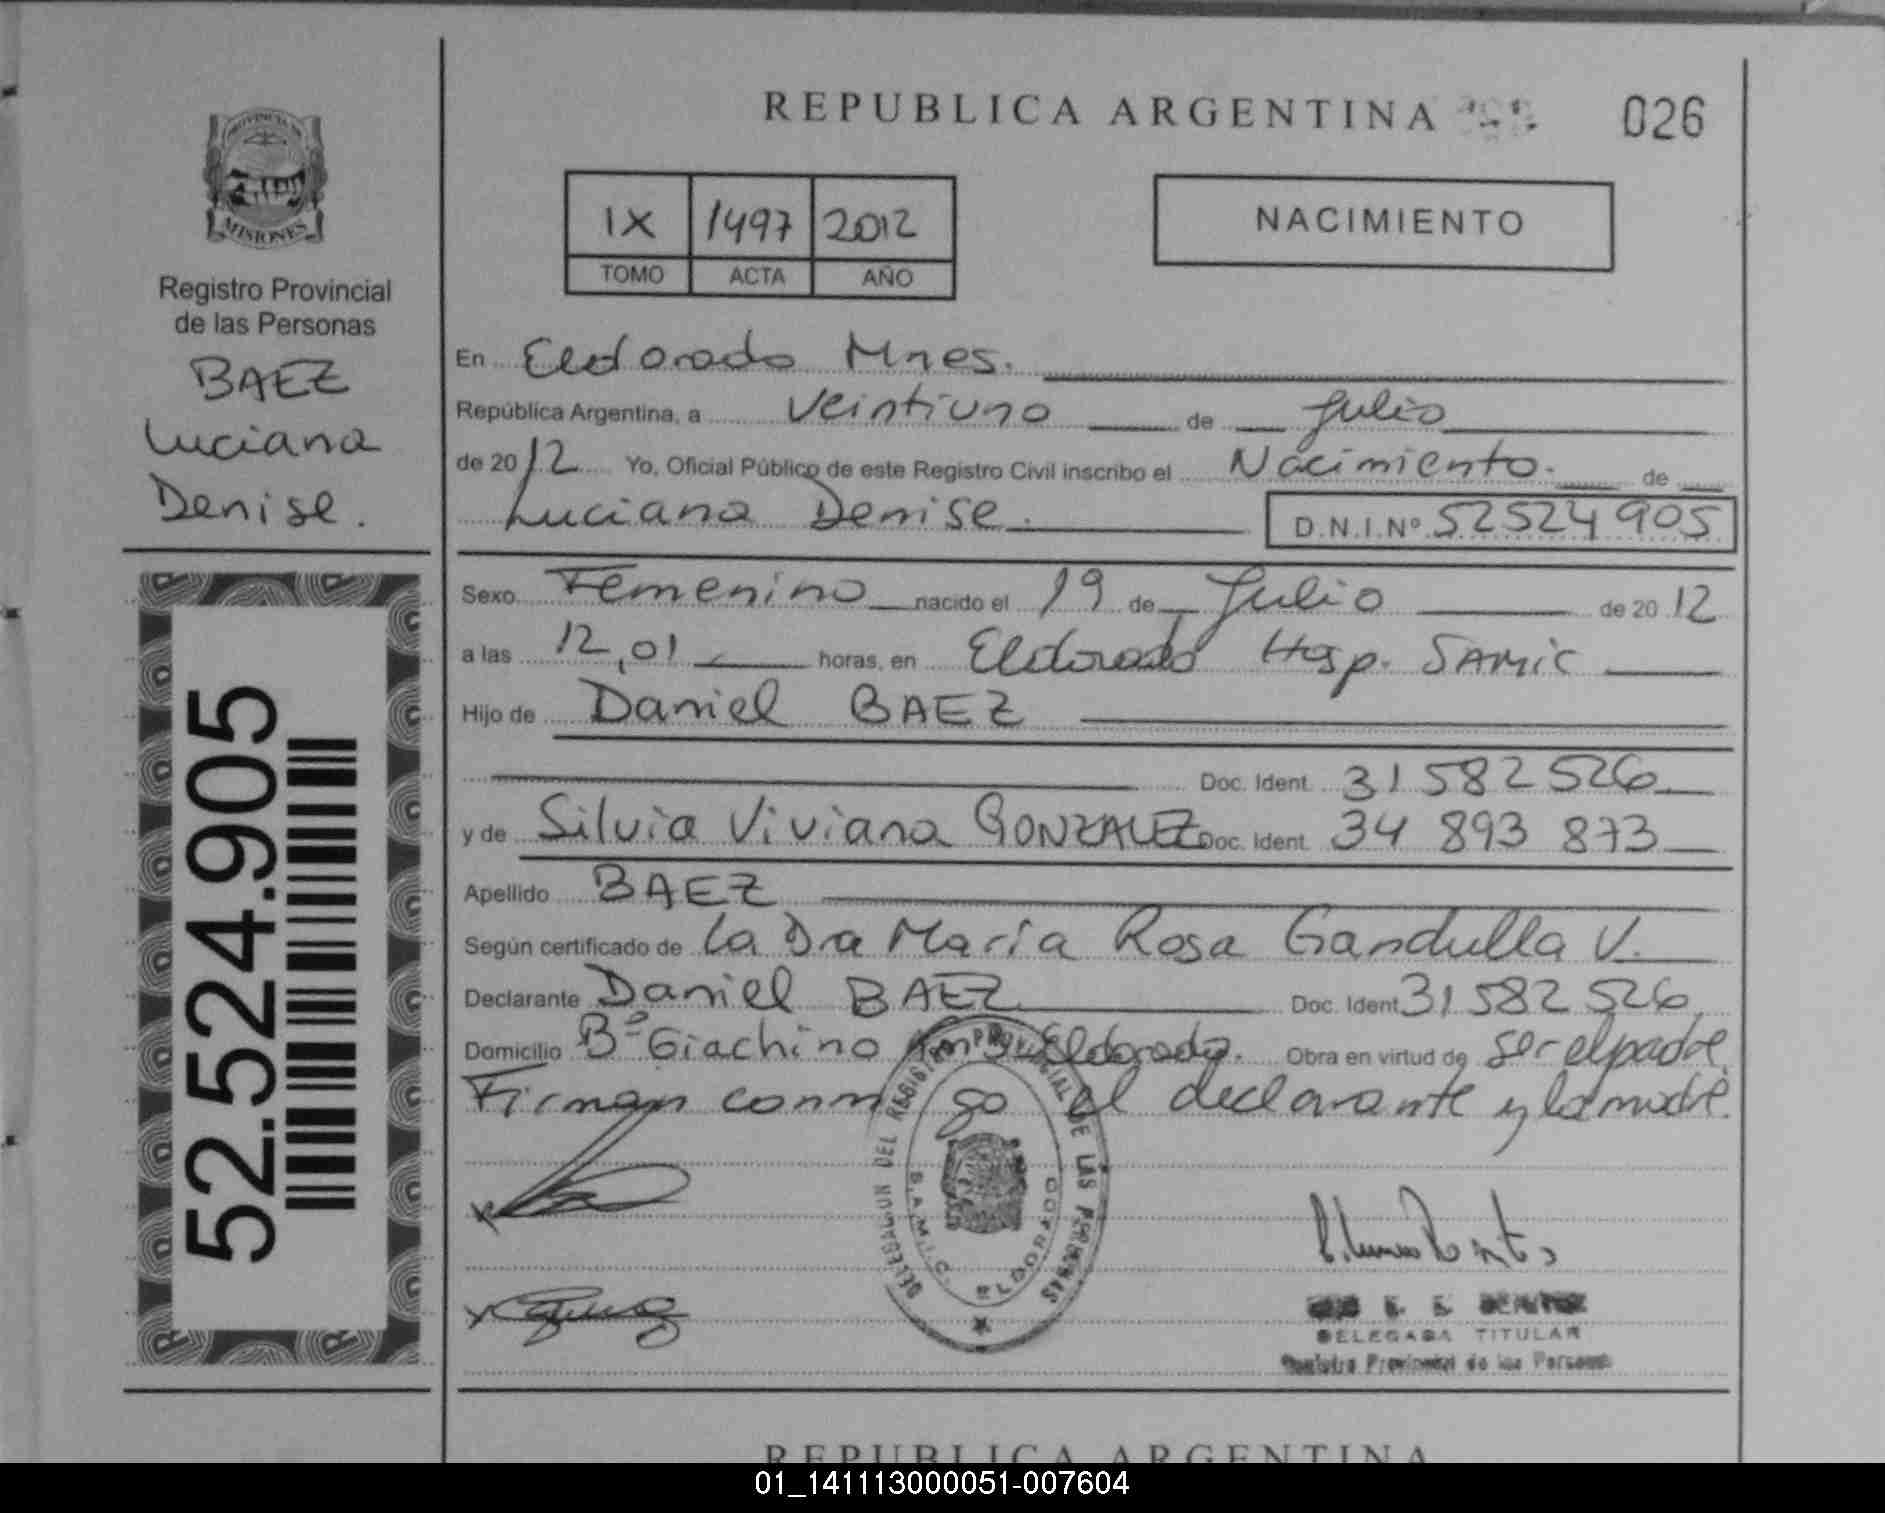 REPUBLICA ARGENTINA
026
PROVINCIA DE
MISIONES
Registro Provincial
de las Personas
BAEZ
Luciana
Denise.
52.524.905
IX 1497 2012
TOMO ACTA AÑO
NACIMIENTO
En Eldorado Mnes.
República Argentina, a veintiuno de Julio
de 2012 Yo, Oficial Público de este Registro Civil inscribo el Nacimiento. de
Luciana Denise. D.N.I.Nº 52524905
Sexo Femenino nacido el 19 de Julio de 2012
a las 12,01 horas, en Eldorado Hosp. SAMIC
Hijo de Daniel BAEZ
Doc. Ident. 31 582 526
y de Silvia Viviana GONZALEZ Doc. Ident. 34 893 873
Apellido BAEZ
Según certificado de La Dra María Rosa Gandulla V.
Declarante Daniel BAEZ Doc. Ident 31 582 526
Domicilio Bº Giachino Eldorado. Obra en virtud de ser el padre
Firman conmigo el declarante y la madre.
DELEGACION DEL REGISTRO PROVINCIAL DE LAS PERSONAS
S.A.M.I.C. ELDORADO
DELEGADA TITULAR
Registro Provincial de las Personas
REPUBLICA ARGENTINA
01_141113000051-007604